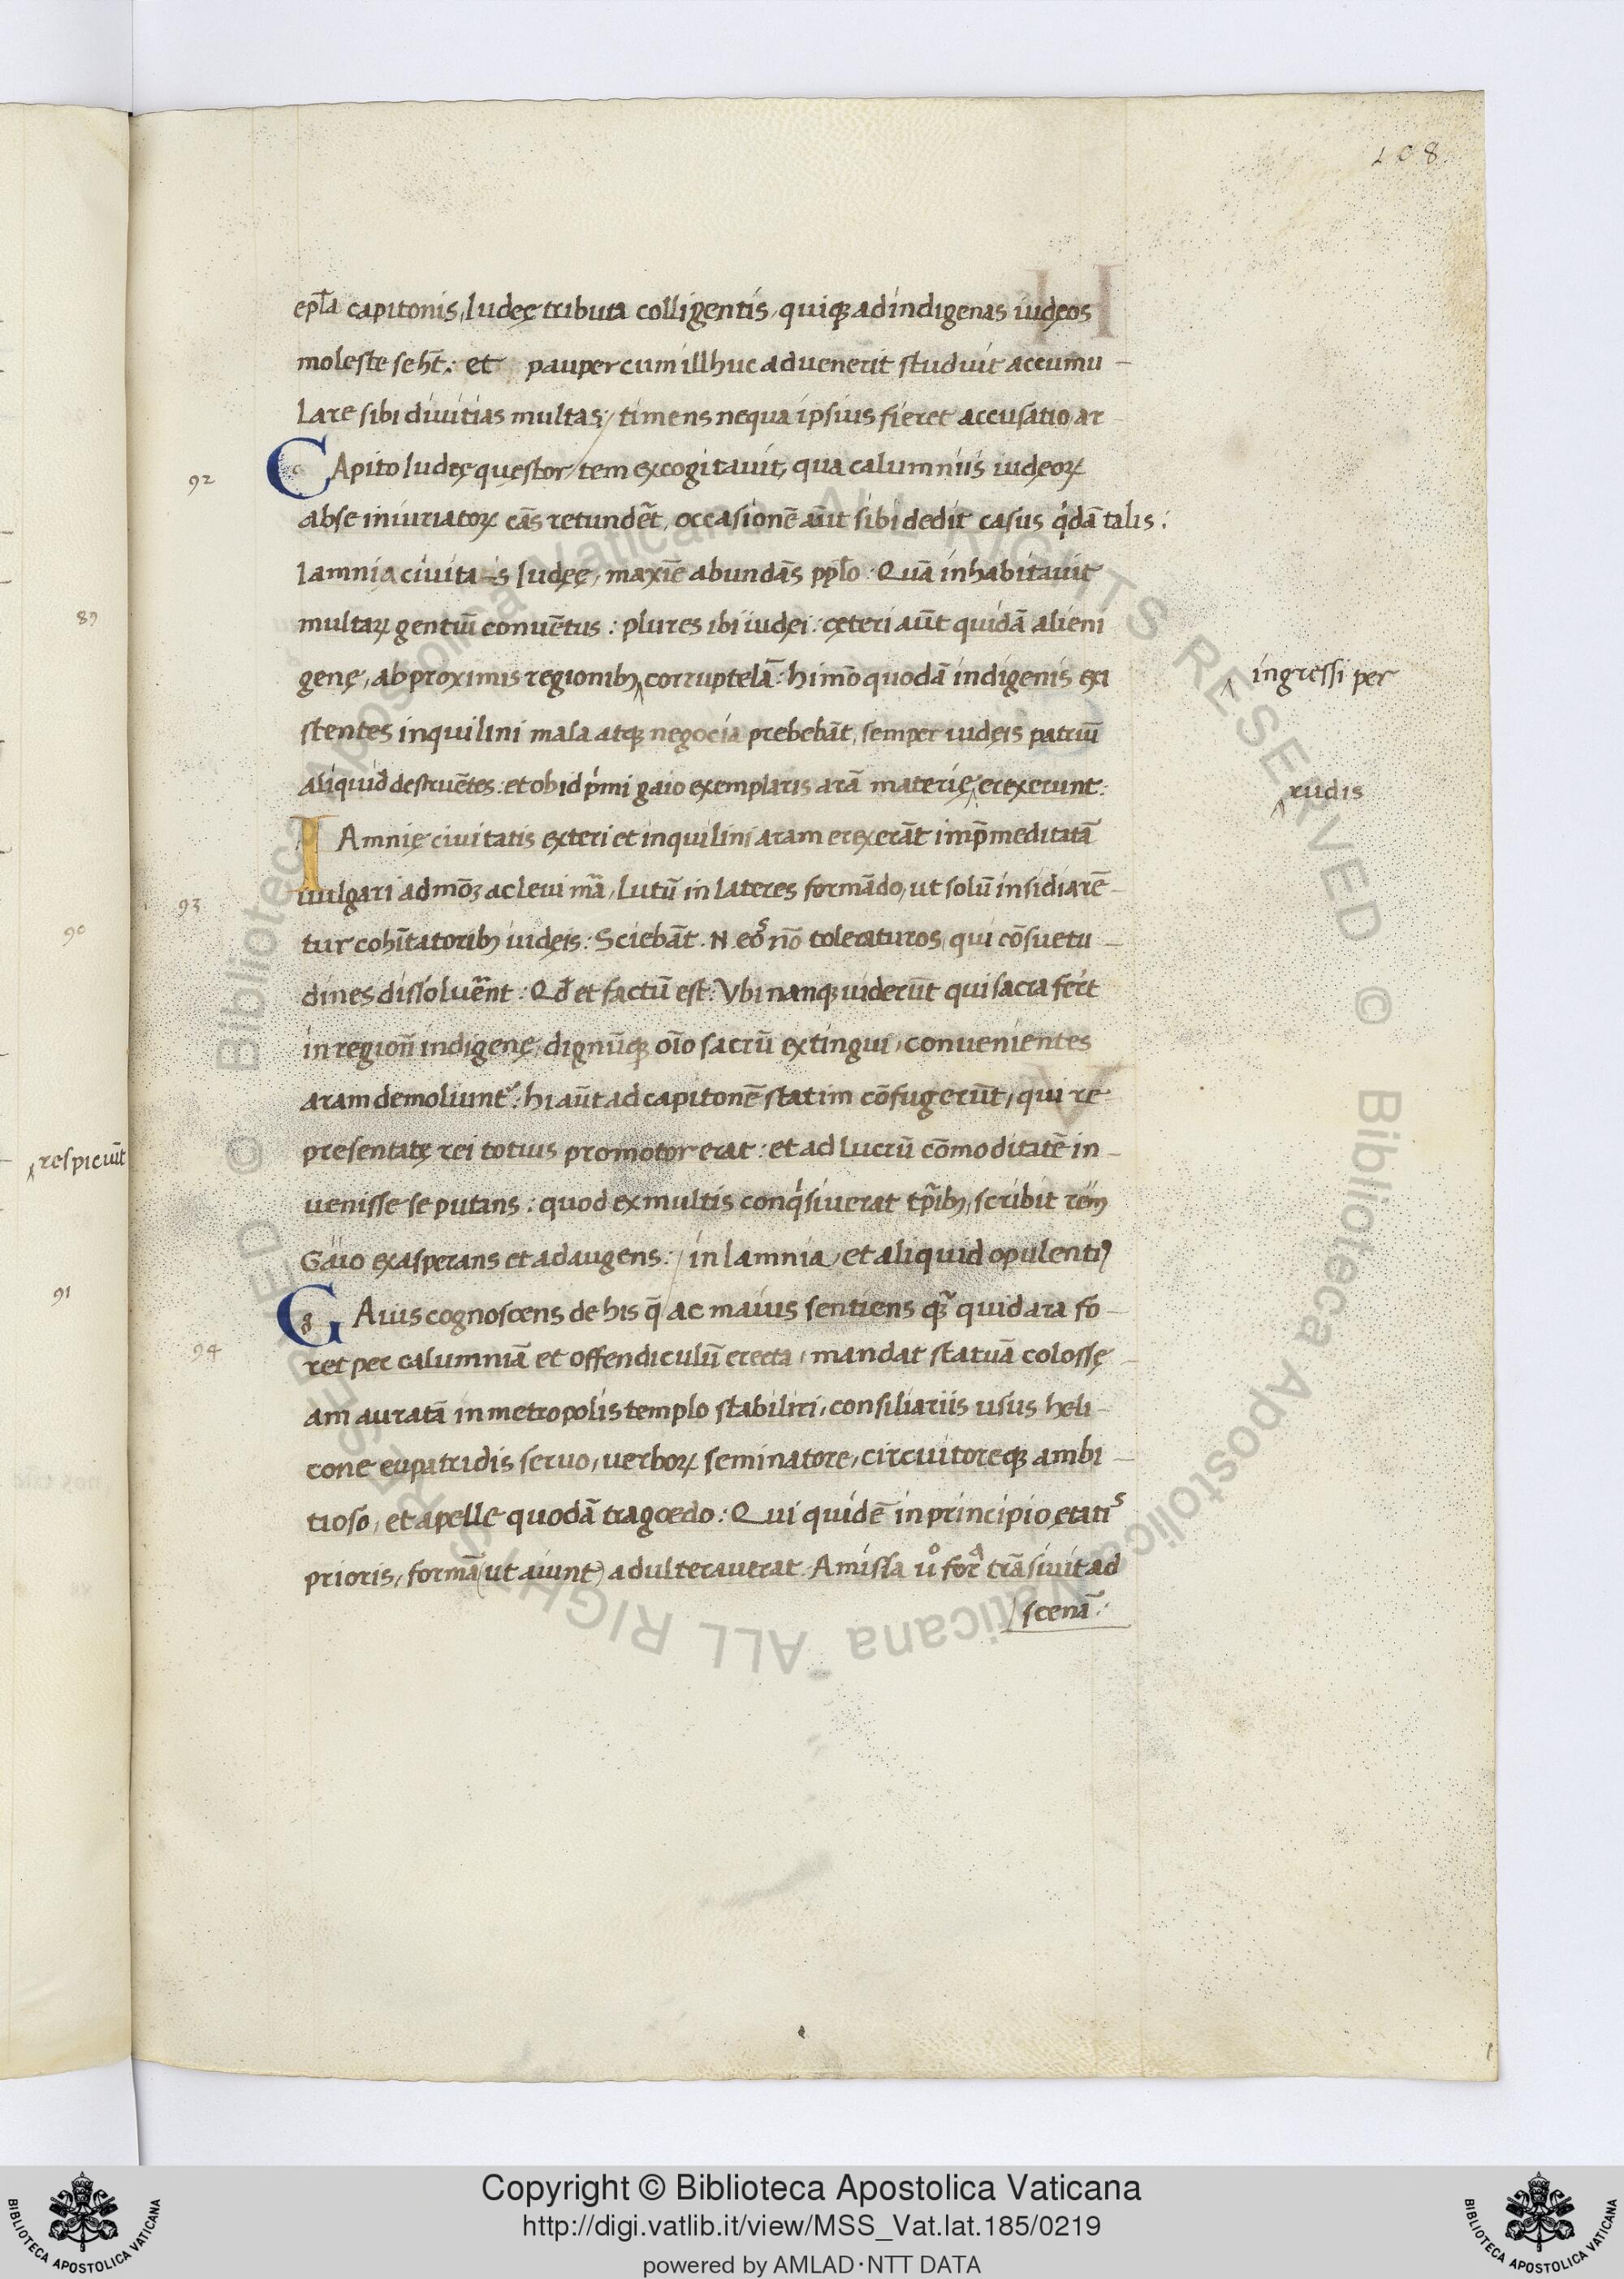 108
ep̃la capitonis, Iudeę tributa colligentis, quiqꝫ ad indigenas iudęos
moleste se ht̃. et pauper cum illhuc aduenerit studuit accumu-
lare sibi diuitias multas: timens nequa ipsius fieret accusatio ar
92 CApito Iudeę quęstor tem excogitauit, qua calumniis iudęoꝝ
abse iniuriatoꝝ cãs retundẽt, occasionẽ aũt sibi dedit casus q̇dã talis:
Iamnia ciuitas Iudeę, maxĩe abundãs pp̃lo. Quã inhabitauit
multaꝝ gentiũ conuẽtus: plures ibi iudęi: cęteri aũt quidã alieni
genę, ab proximis regionibꝫ corruptelã: hi mõ quodã indigenis exi ingressi per
stentes inquilini mala atqꝫ negocia prebebãt, semper iudęis patriũ
aliquid destruẽtes: et ob id ṗmi gaio exemplaris arã materię erexerunt: rudis
IAmnię ciuitatis exteri et inquilini aram erexerãt imp̃meditatã
93 uulgari admõꝫ ac leui mã, Lutũ in lateres formãdo, ut solũ insidiarẽ-
tur cohĩtatoribꝫ iudęis: Sciebãt .N. eos nõ toleraturos, qui cõsuetu-
dines dissoluẽnt: Qđ et factũ est: Vbi nanqꝫ uiderũt qui sacra fert
in regioñ indigenę, dignũqꝫ oĩo sacrũ extingui, conuenientes
aram demoliunt᷑: hi aũt ad capitonẽ statim cõfugerũt, qui re
presentatę rei totius promotor erat: et ad lucrũ cõmoditatẽ in-
uenisse se putans: quod ex multis conq̇siuerat tp̃ibꝫ, scribit rem
Gaio exasperans et adaugens: in Iamnia, et aliquid opulentiꝰ
GAius cognoscens de his q̃ ac maius sentiens qꝫ quid ara fo-
94 ret per calumniã et offendiculũ erecta, mandat statuã colossę
am auratã in metropolis templo stabiliri, consiliariis usus heli-
cone eupatridis seruo, uerboꝝ seminatore, circuitoreqꝫ ambi-
tioso, et apelle quodã tragoedo: Qui quidẽ in principio ętatis
prioris, formã (ut aiunt) adulterauerat. Amissa ů forã trãsiuit ad
scenã:
89
90
respiciũt
91
Copyright © Biblioteca Apostolica Vaticana
http://digi.vatlib.it/view/MSS_Vat.lat.185/0219
powered by AMLAD·NTT DATA
BIBLIOTECA APOSTOLICA VATICANA
BIBLIOTECA APOSTOLICA VATICANA
© Biblioteca Apostolica Vaticana ALL RIGHTS RESERVED © Biblioteca Apostolica Vaticana ALL RIGHTS RESERVED